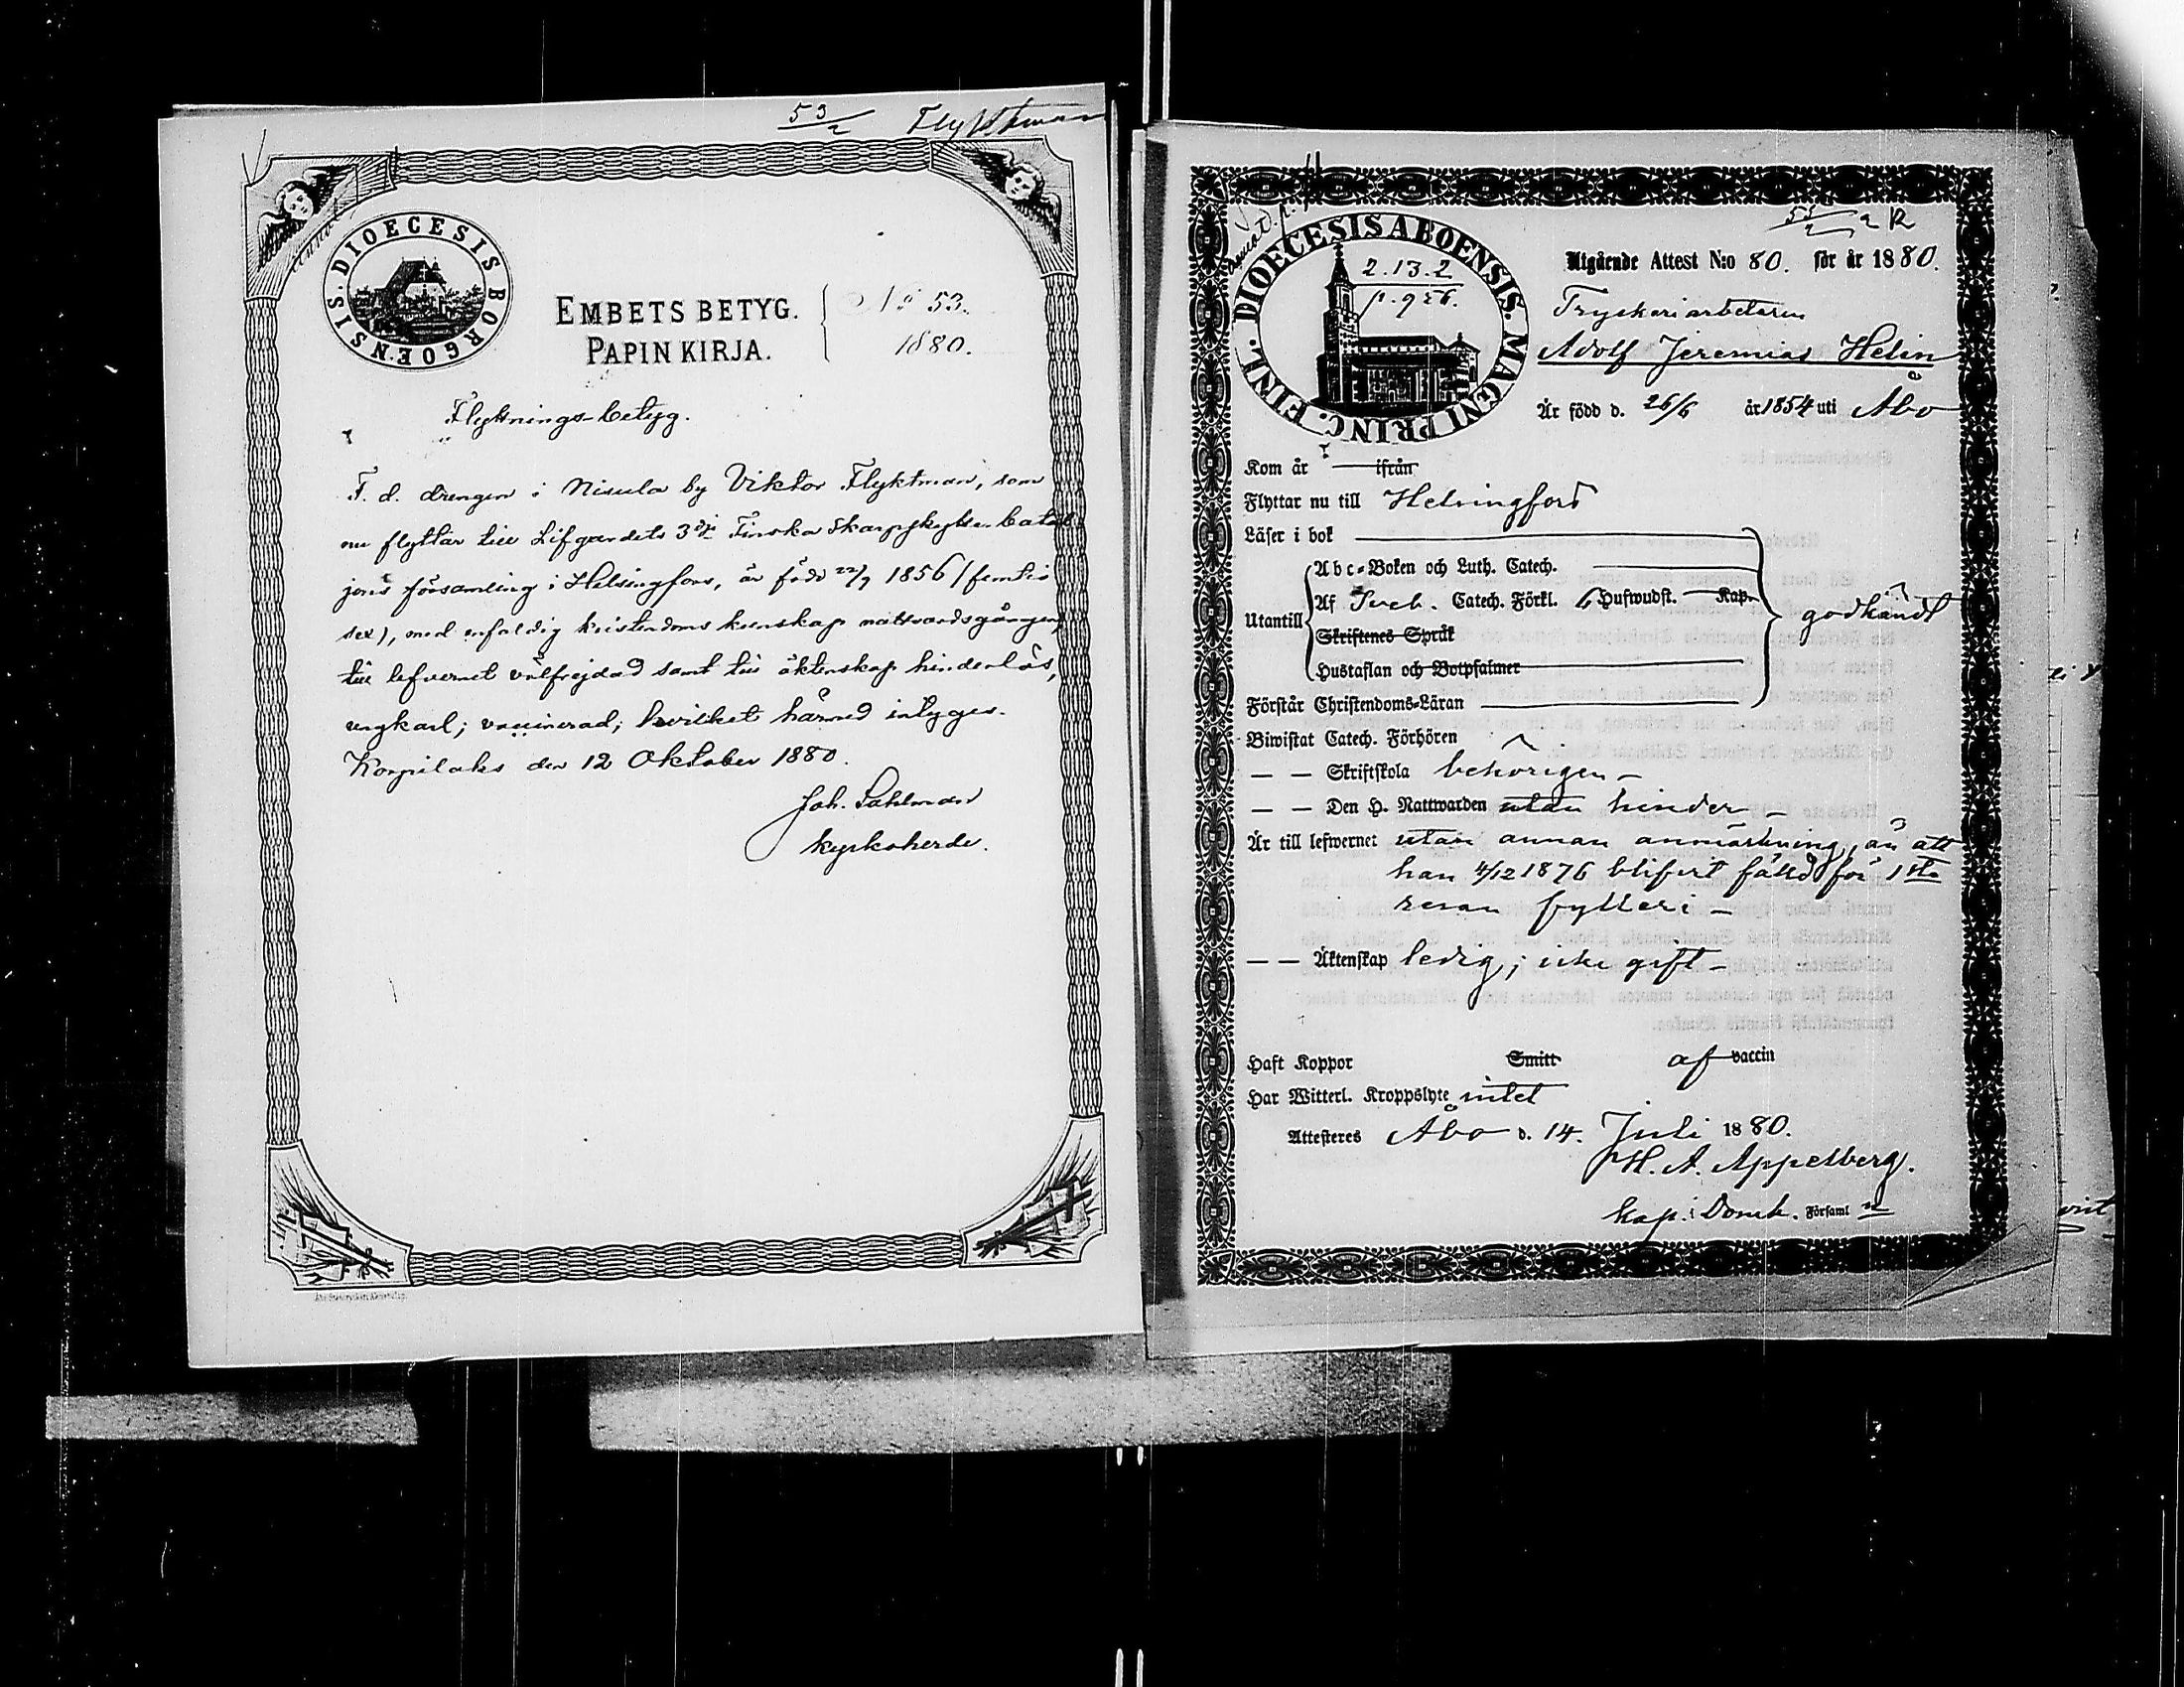 53/2 Flyktman
DIOECESIS BORGOENSIS.
EMBETS BETYG.
PAPIN KIRJA.
No 53.
1880.
Flyttnings-betyg.
F. d. drengen i Nisula by Viktor Flyktman, som
nu flyttar till Lifgardets 3dje Finska Skarpskytte batal
jons församling i Helsingfors, är född 22/9 1856 (femtio
sex), med enfaldig kristendoms kunskap nattvardsgången,
till lefvernet välfrejdad samt till äktenskap hinderlös,
ungkarl; vaccinerad; hvilket härmed intygas.
Korpilaks den 12 Oktober 1880.
Joh. Sahlman
kyrkoherde.
DIOECESIS ABOENSIS. MAGNI PRINC. FINL.
2.13.2
p. 956.
Utgående Attest N:o 80. för år 1880.
Tryckeriarbetaren
Adolf Jeremias Helin
Är född d. 26/6 år 1854 uti Åbo
Kom år ifrån
Flyttar nu till Helsingfors
Läser i bok
Abc-Boken och Luth. Catech.
Utantill
Af Sveb. Catech. Förkl. 6 Hufwudst. Kap.
godkändt
Skriftenes Språk
Hustaflan och Botpsalmer
Förstår Christendoms-Läran
Biwistat Catech. Förhören
— — Skriftskola behörigen —
— — Den H. Nattwarden utan hinder —
Är till lefwernet utan annan anmärkning, än att
han 4/12 1876 blifvit fälld för 1sta
resan fylleri —
— — Äktenskap ledig; icke gift —
Haft Koppor Smitt af vaccin
Har Witterl. Kroppslyte intet
Attesteres Åbo d. 14. Juli 1880.
H. A. Appelberg.
Kap. i Domk. Församl n